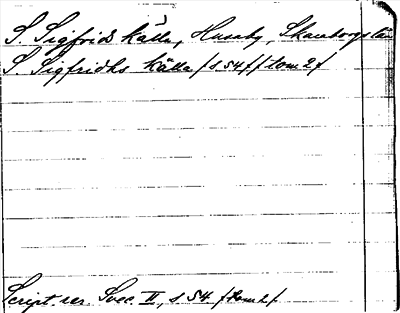 S. Sigfrids källa, Husaby, Skaraborgs län
S. Sigfridhs källa /s 54 f/ /tom 2/
Script. rer. Svec. II, s 54 /tom 2/